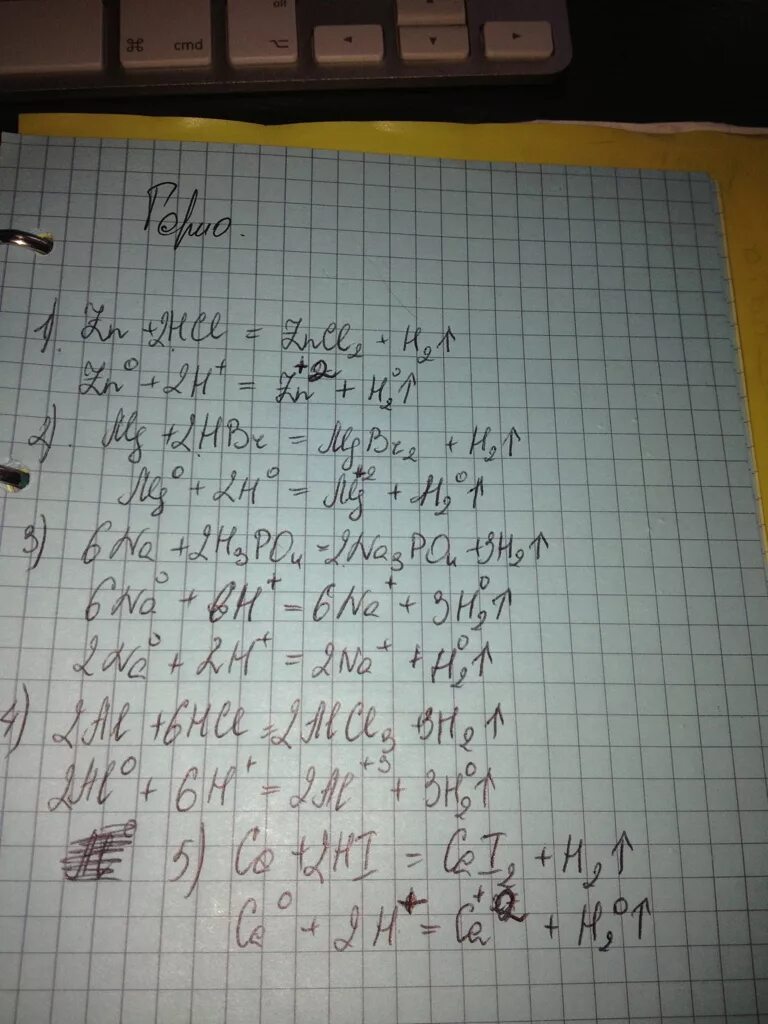 cmd
Zn + 2HCl = ZnCl₂ + H₂↑
1).
Zn⁰ + 2H⁺ = Zn⁺² + H₂⁰↑
2). Mg + 2HBr = MgBr₂ + H₂↑
Mg⁰ + 2H⁰ = Mg⁺² + H₂⁰↑
3) 6Na + 2H₃PO₄ = 2Na₃PO₄ + 3H₂↑
6Na⁰ + 6H⁺ = 6Na⁺ + 3H₂⁰↑
2Na⁰ + 2H⁺ = 2Na⁺ + H₂⁰↑
4) 2Al + 6HCl = 2AlCl₃ + 3H₂↑
2Al⁰ + 6H⁺ = 2Al⁺³ + 3H₂⁰↑
5) Ca + 2HI = CaI₂ + H₂↑
Ca⁰ + 2H⁺ = Ca⁺² + H₂⁰↑